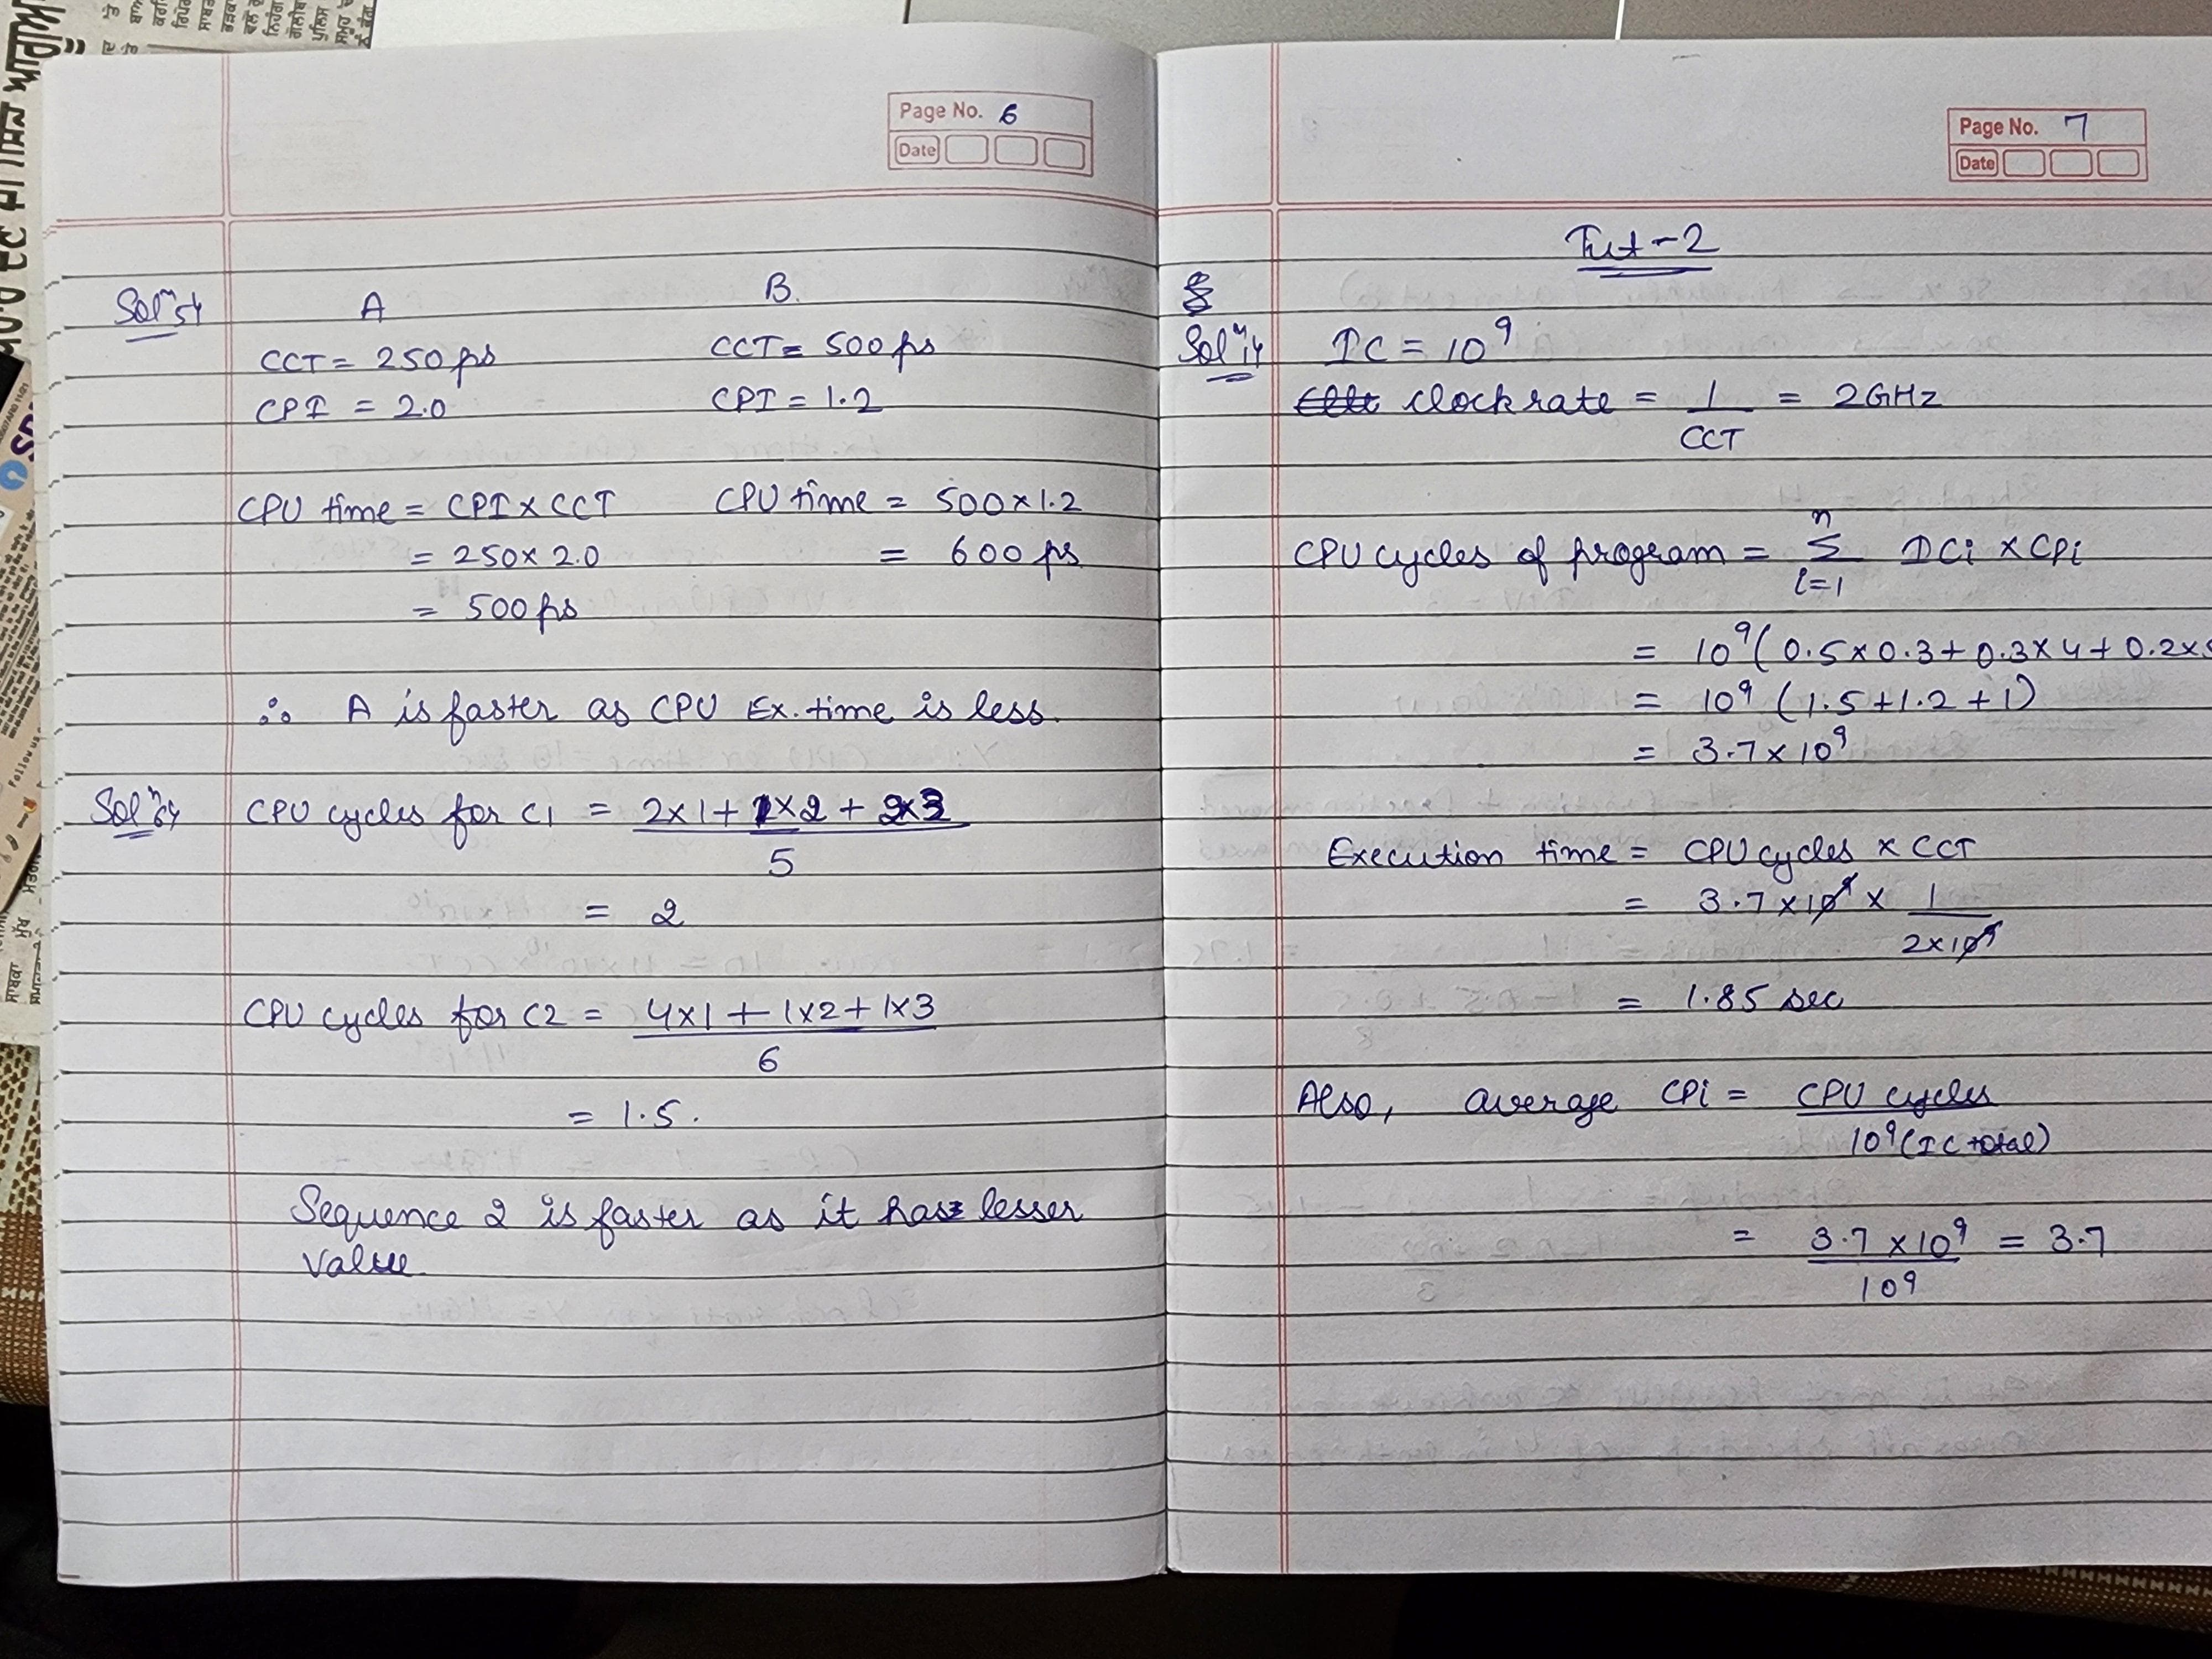 Page No. 6
Date
Solⁿ 5→
A
B.
CCT = 250 ps
CCT = 500 ps
CPI = 2.0
CPI = 1.2
CPU time = CPI x CCT
CPU time = 500 x 1.2
= 250 x 2.0
= 600 ps
= 500 ps
∴ A is faster as CPU Ex. time is less.
Solⁿ 6→
CPU cycles for C1 = 2x1 + 1x2 + 2x3
5
= 2
CPU cycles for C2 = 4x1 + 1x2 + 1x3
6
= 1.5.
Sequence 2 is faster as it has lesser
value
Page No. 7
Date
Tut-2
Solⁿ 1→ IC = 10⁹
clock rate = 1 = 2GHz
CCT
n
CPU cycles of program = Σ ICi x CPi
i=1
= 10⁹ ( 0.5 x 0.3 + 0.3 x 4 + 0.2 x 5
= 10⁹ (1.5 + 1.2 + 1)
= 3.7 x 10⁹
Execution time = CPU cycles x CCT
= 3.7 x 10⁹ x 1
2 x 10⁹
= 1.85 sec
Also, average CPi = CPU cycles
10⁹ (IC total)
= 3.7 x 10⁹ = 3.7
10⁹